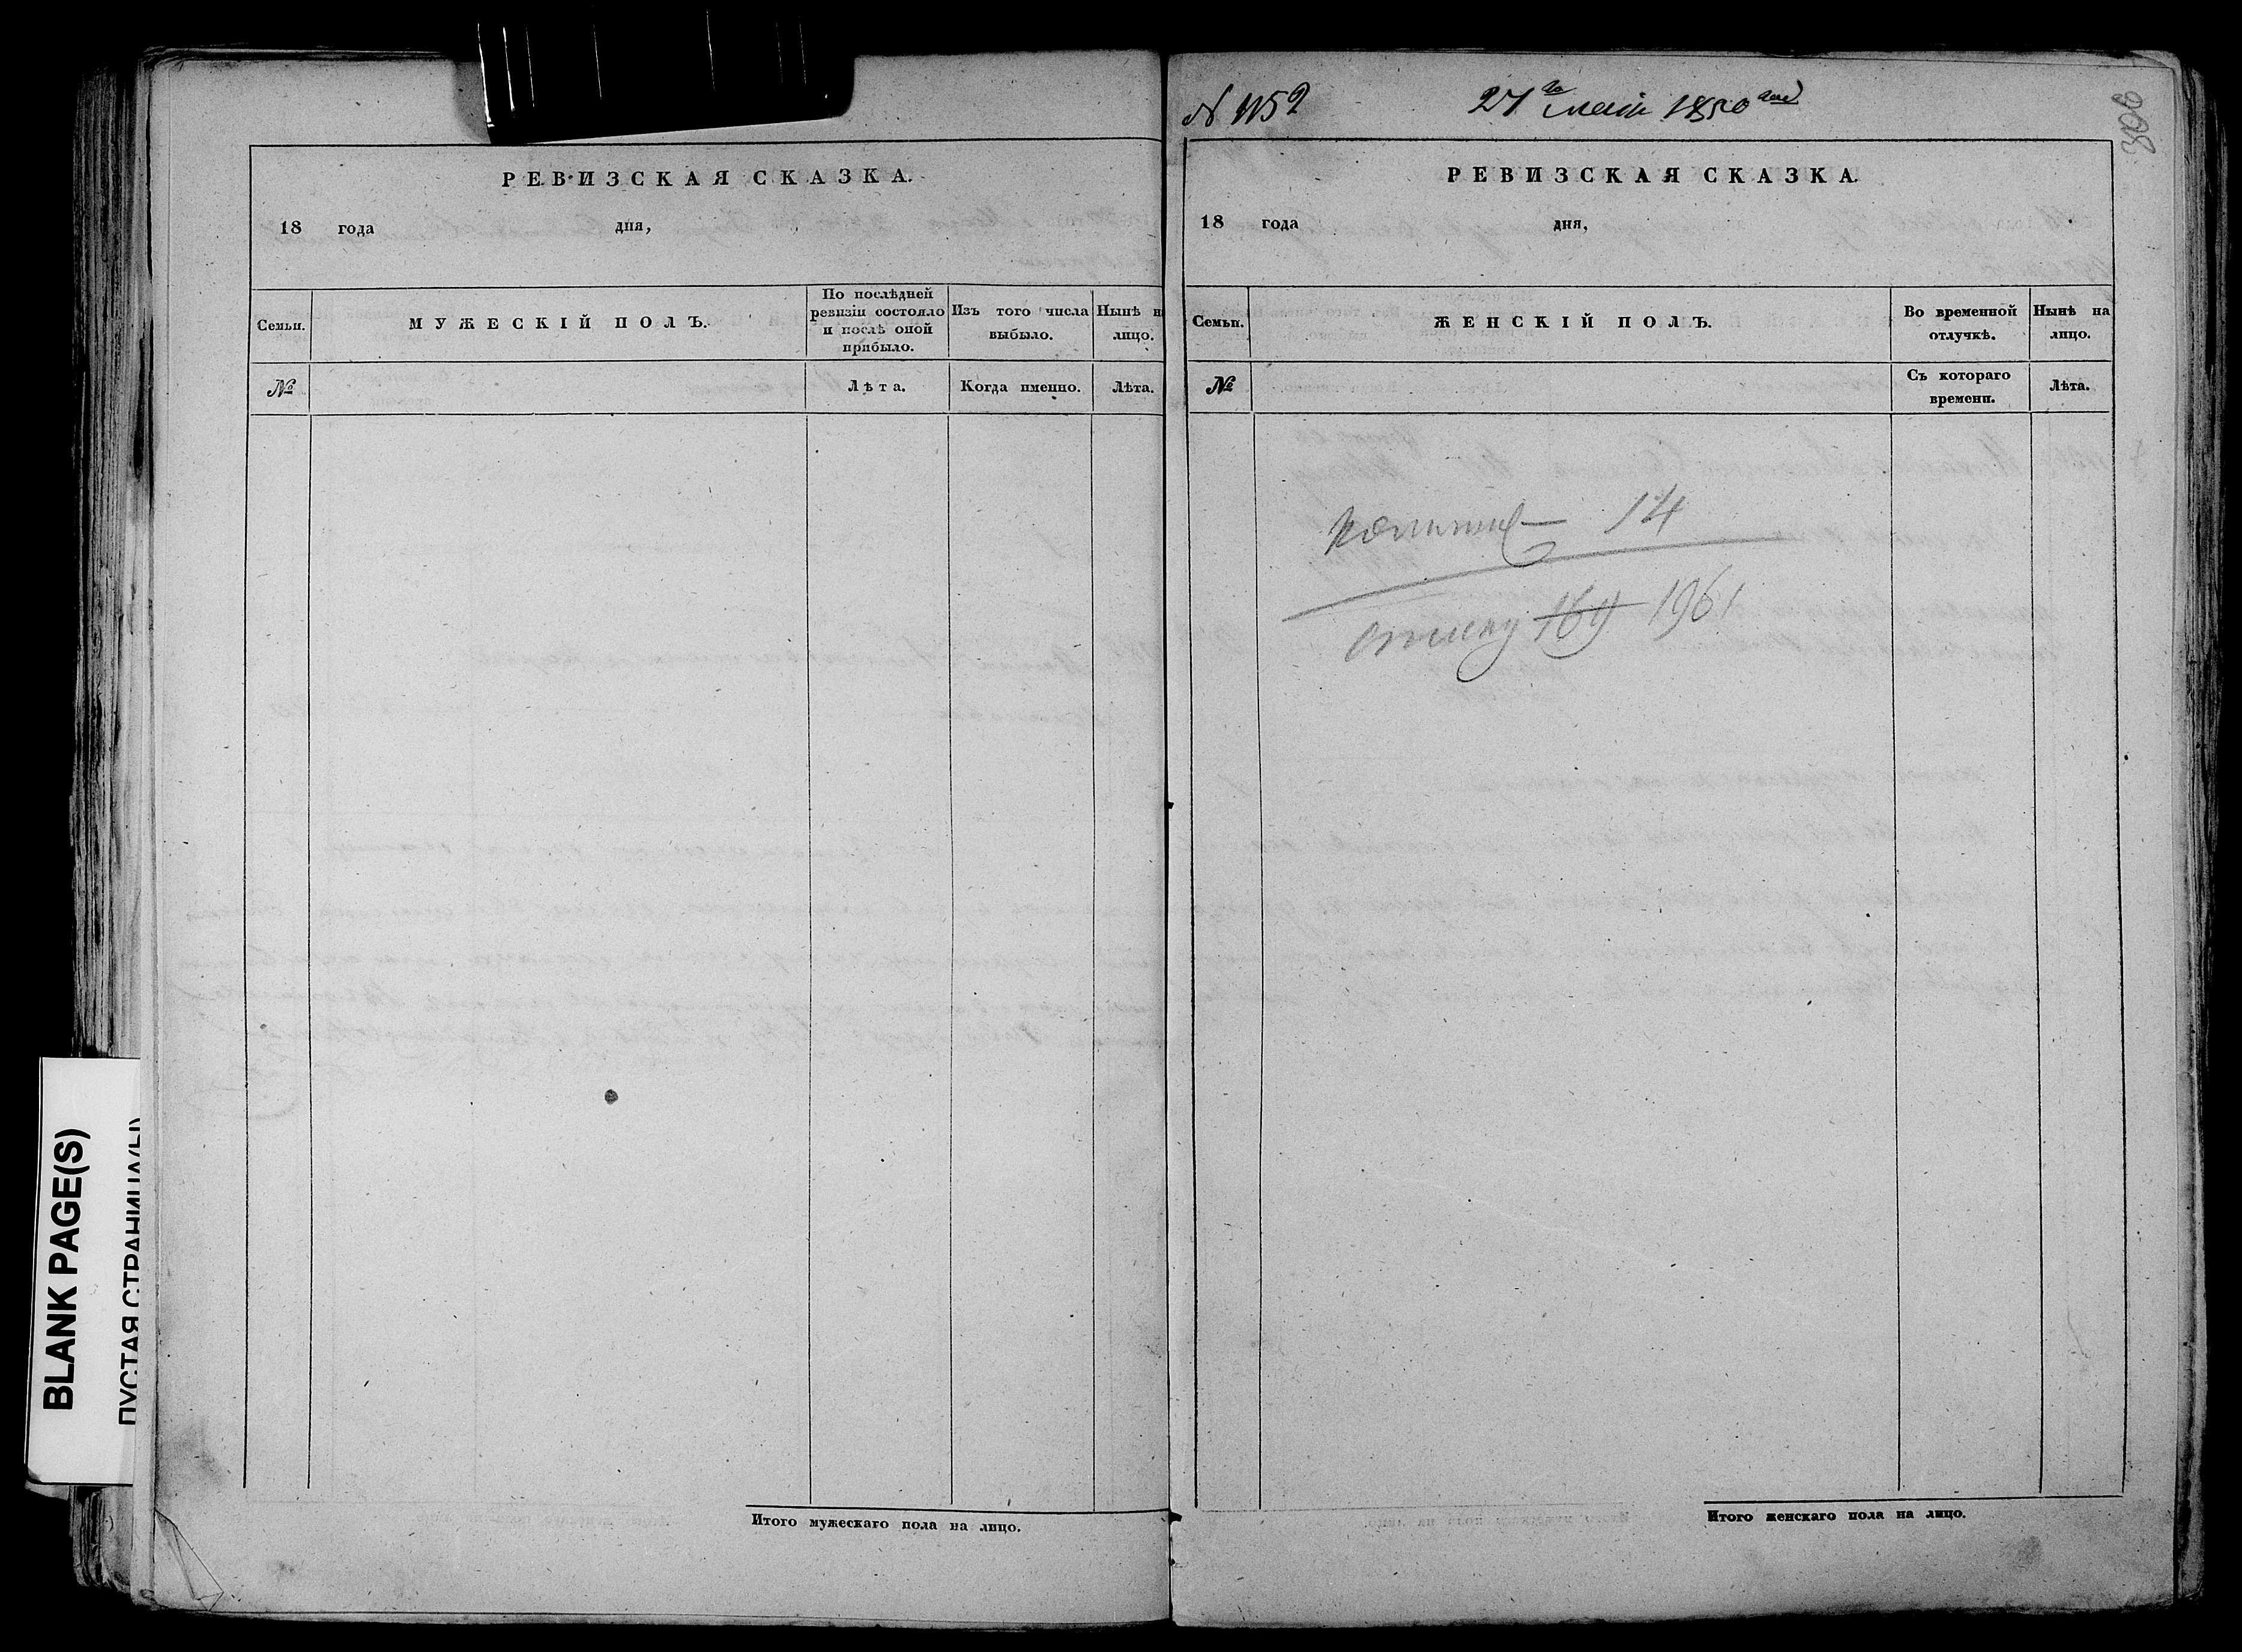 РЕВИЗСКАЯ СКАЗКА.
18 года дня,
Семьи.
МУЖЕСКІЙ ПОЛЪ.
По послѣдней
ревизіи состояло
и послѣ оной
прибыло.
Изъ того числа
выбыло.
Нынѣ н
лицо.
№
Лѣта.
Когда именно.
Лѣта.
Итого мужескаго пола на лицо.
N 1152
27го маія 1850 года
300
РЕВИЗСКАЯ СКАЗКА.
18 года дня,
Семьи.
ЖЕНСКІЙ ПОЛЪ.
Во временной
отлучкѣ.
Нынѣ на
лицо.
№
Съ котораго
времени.
Лѣта.
14
169 1961
Итого женскаго пола на лицо.
BLANK PAGE(S)
ПУСТАЯ СТРАНИЦА(Ы)